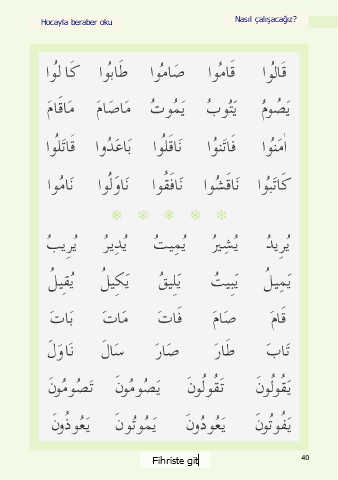 Hocayla beraber oku
Nasıl çalışacağız?
قَالُوا قَامُوا صَامُوا طَابُوا كَالُوا
يَصُومُ يَتُوبُ يَمُوتُ مَاصَامَ مَاقَامَ
اٰمَنُوا فَاتَنُوا نَاقَلُوا بَاعَدُوا قَاتَلُوا
كَاتَبُوا نَاقَشُوا نَافَقُوا نَاوَلُوا نَامُوا
يُرِيدُ يُشِيرُ يُمِيتُ يُدِيرُ يُرِيبُ
يَمِيلُ يَبِيتُ يَلِيقُ يَكِيلُ يُقِيلُ
قَامَ صَامَ فَاتَ مَاتَ بَاتَ
تَابَ طَارَ صَارَ سَالَ نَاوَلَ
يَقُولُونَ تَقُولُونَ يَصُومُونَ تَصُومُونَ
يَفُوتُونَ يَعُودُونَ يَمُوتُونَ يَعُوذُونَ
Fihriste git
40